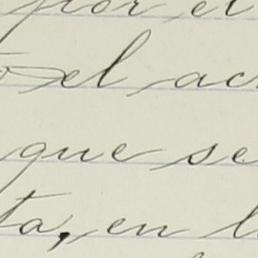 por el
el ac
que se
ta, en l